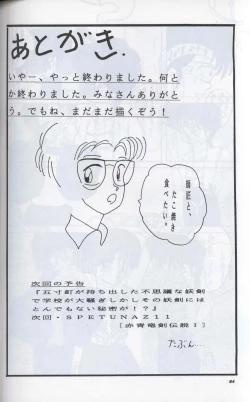 あとがき.
いやー、やっと終わりました。何と
か終わりました。みなさんありがと
う。でもね、まだまだ描くぞう！
師匠と、
たこ焼き
食べたい。
次回の予告
『五寸釘が持ち出した不思議な妖剣
で学校が大騒ぎしかしその妖剣には
とんでもない秘密が！？』
次回・SPETUNAZ11
[赤青竜剣伝説I]
たぶん…